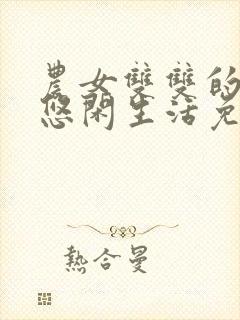 農女雙雙的
悠閑生活免
熱合曼